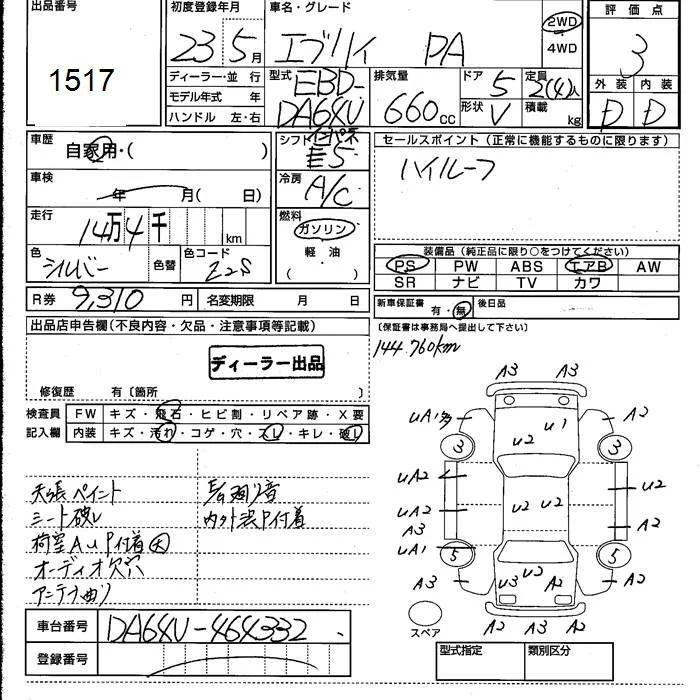 出品番号 初度登録年月 車名・グレード 2WD 評価点
1517 23 5月 エブリィ PA 4WD 3
ディーラー・並行 型式 EBD-DA64V 排気量 660cc ドア 5 定員 2(4)人 外装 内装
モデル年式 年 形状 V 積載 kg D D
ハンドル 左・右
車歴 自家用・( ) シフト インパネ E5 セールスポイント(正常に機能するものに限ります)
車検 年 月( 日) 冷房 A/C ハイルーフ
走行 14万4千 km 燃料 ガソリン 軽油 ( )
色 シルバー 色替 色コード Z2S 装備品(純正品に限り○をつけてください)
PS PW ABS エアB AW
SR ナビ TV カワ
R券 9,310円 名変期限 月 日 新車保証書 有・無 後日品
出品店申告欄(不良内容・欠品・注意事項等記載) (保証書は事務局へ提出して下さい)
144.760km
ディーラー出品
修復歴 有〔箇所 〕
検査員 FW キズ・飛石・ヒビ割・リペア跡・X要
記入欄 内装 キズ・汚れ・コゲ・穴・スレ・キレ・破レ
天張ペイント
シート破レ 内外装P付着
荷室AuP付着大
オーディオ欠穴
アンテナ曲り
A3 A3
UA1多 U2 U1 A3
3 3
UA2 U2
UA2 U2 U2 A2
A3
UA1 5 U2 5
A3 U3 A2 A2
スペア A2 A3 A2
車台番号 DA64V-464332
登録番号 型式指定 類別区分